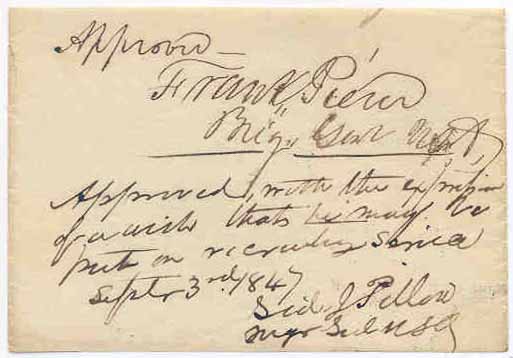 Approved —
Frank, Pierce
Brig, Genl U.S.A,
Approved, with the expression
of a wish that he may be
put on recruiting service
Septr 3rd. 1847
Gid. J Pillow
Majr Genl U S A